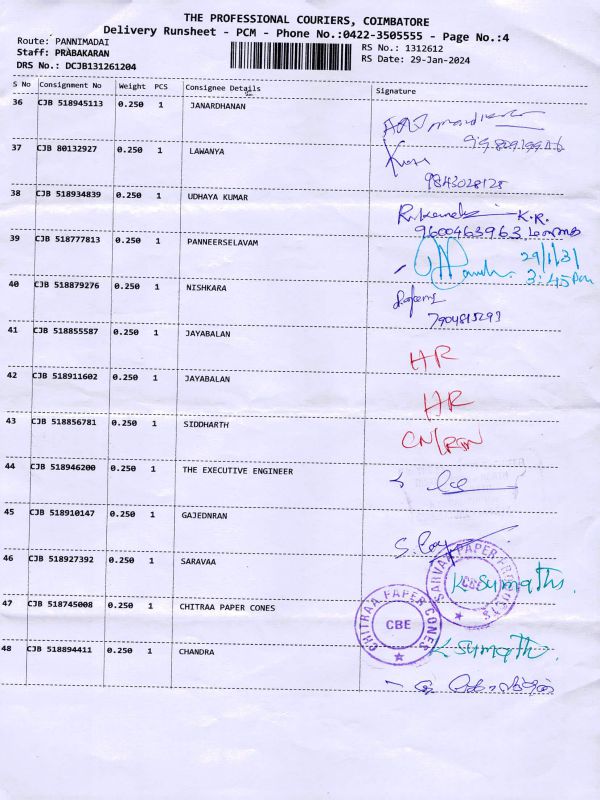 THE PROFESSIONAL COURIERS, COIMBATORE
Delivery Runsheet - PCM - Phone No.:0422-3505555 - Page No.:4
Route: PANNIMADAI
RS No.: 1312612
Staff: PRABAKARAN
RS Date: 29-Jan-2024
DRS No.: DCJB131261204
S No Consignment No Weight PCS Consignee Details Signature
36 CJB 518945113 0.250 1 JANARDHANAN
37 CJB 80132927 0.250 1 LAWANYA
9843028128
38 CJB 518934839 0.250 1 UDHAYA KUMAR
K.R.
9600463963
39 CJB 518777813 0.250 1 PANNEERSELAVAM
29/1/31
3:45 Pm
40 CJB 518879276 0.250 1 NISHKARA
7904815293
41 CJB 518855587 0.250 1 JAYABALAN
HR
42 CJB 518911602 0.250 1 JAYABALAN
HR
43 CJB 518856781 0.250 1 SIDDHARTH
CN/RTN
44 CJB 518946200 0.250 1 THE EXECUTIVE ENGINEER
45 CJB 518910147 0.250 1 GAJEDNRAN
46 CJB 518927392 0.250 1 SARAVAA
K. Sumathi.
47 CJB 518745008 0.250 1 CHITRAA PAPER CONES
CHITRAA PAPER CONES
CBE
48 CJB 518894411 0.250 1 CHANDRA
K Sumathi.